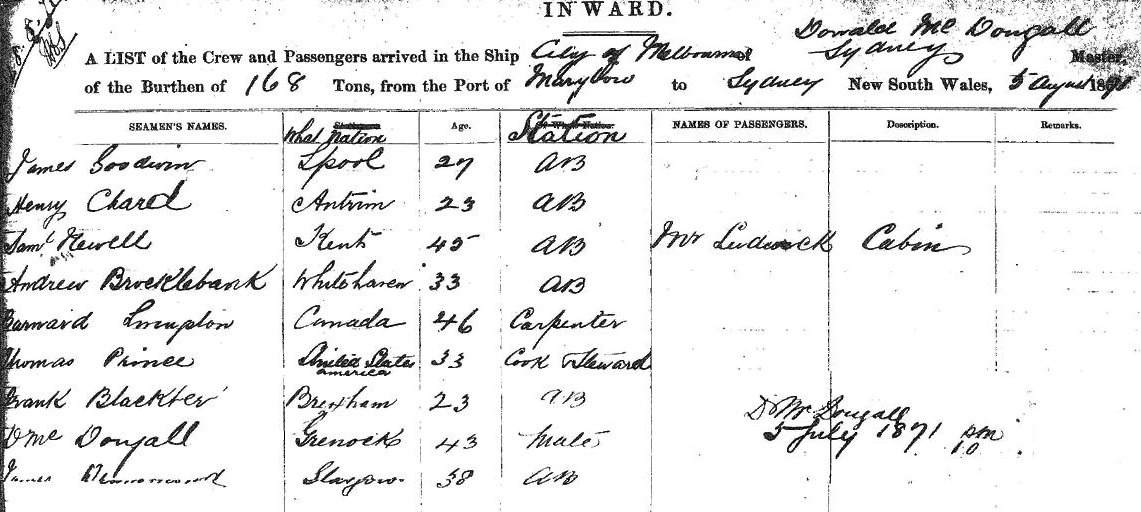 INWARD.
Donald Mc Dougall
A LIST of the Crew and Passengers arrived in the Ship City of Melbourne Sydney Master,
of the Burthen of 168 Tons, from the Port of to Sydney New South Wales, 5 August 1871
SEAMEN'S NAMES. What Nation Age. Station NAMES OF PASSENGERS. Description. Remarks.
James Goodwin Lpool 27 AB
Henry Chard Antrim 23 AB
Saml Newell Kent 45 AB Mr Cabin
Andrew Brocklebank Whitehaven 33 AB
Canada 46 Carpenter
Thomas Prince United States america 33 Cook & Steward
Frank Brixham 23 AB
D Mc Dougall Grenock 43 Mate
D Mc Dougall
5 July 1871 pm
10
James Glasgow 38 AB